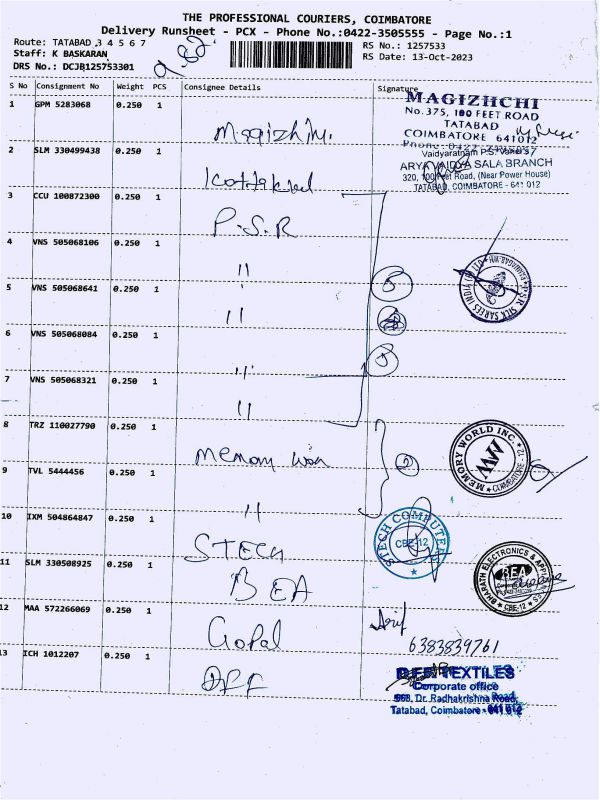 THE PROFESSIONAL COURIERS, COIMBATORE
Delivery Runsheet - PCX - Phone No.:0422-3505555 - Page No.:1
Route: TATABAD 3 4 5 6 7
Staff: K BASKARAN
DRS No.: DCJB125753301
RS No.: 1257533
RS Date: 13-Oct-2023
S No Consignment No Weight PCS Consignee Details Signature
1 GPM 5283068 0.250 1
MAGIZHCHI
No.375, 100 FEET ROAD
TATABAD
COIMBATORE 641012
2 SLM 330499438 0.250 1
Vaidyaratnam P.S. Varier's
ARYA VAIDYA SALA BRANCH
320, 100 Feet Road, (Near Power House)
TATABAD, COIMBATORE - 641 012
3 CCU 100872300 0.250 1 P.S.R
4 VNS 505068106 0.250 1 "
5 VNS 505068641 0.250 1 "
P.S.R SILK SAREES
6 VNS 505068084 0.250 1 "
7 VNS 505068321 0.250 1 "
8 TRZ 110027790 0.250 1 Memory
MEMORY WORLD INC.
MW
COIMBATORE - 12
9 TVL 5444456 0.250 1 "
10 IXM 504864847 0.250 1 STECH
STECH COMPUTERS
CBE-12
11 SLM 330508925 0.250 1 BEA
BHARATH ELECTRONICS &
BEA
CBE-12
12 MAA 572266069 0.250 1 Gopal
6383839761
13 ICH 1012207 0.250 1
TEXTILES
Corporate office
568, Dr. Radhakrishna Road,
Tatabad, Coimbatore - 641 012